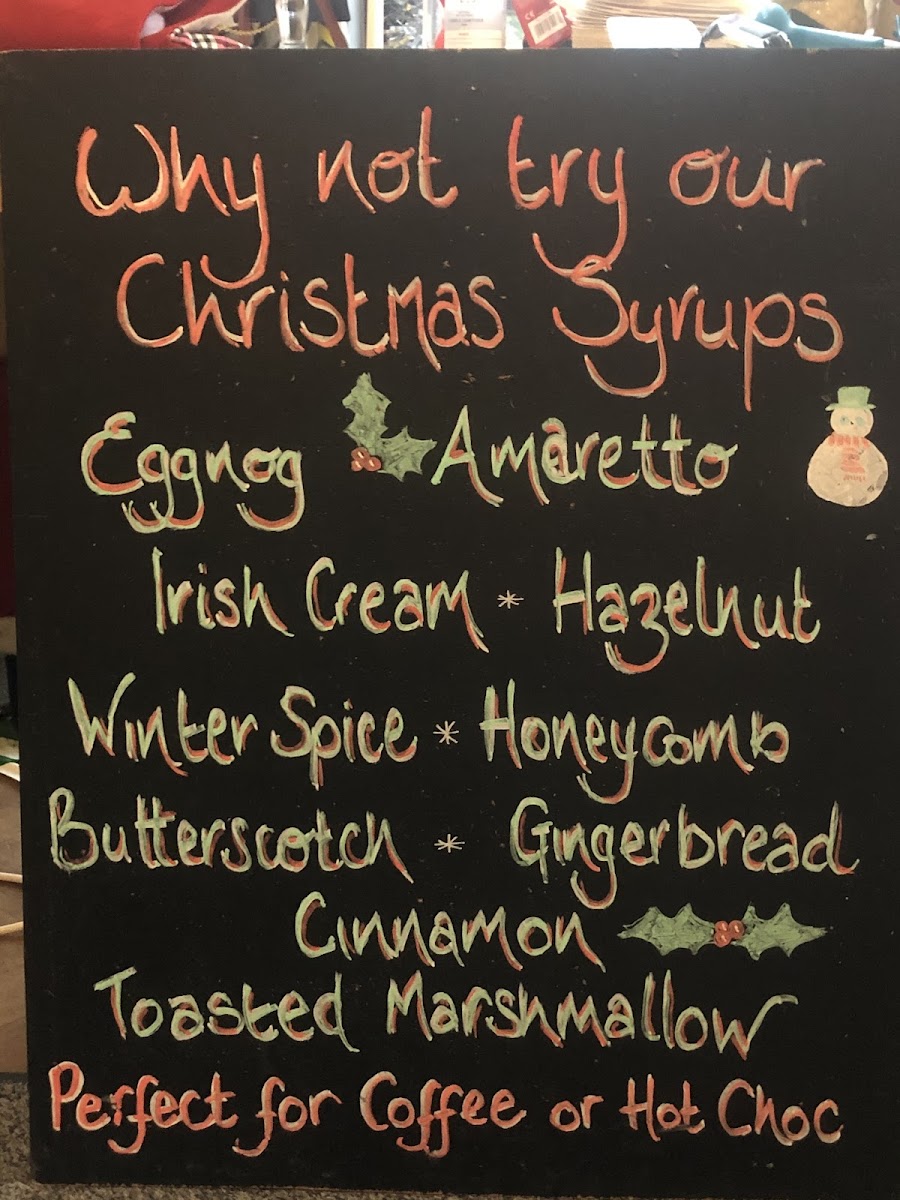 Why not try our
Christmas Syrups
Eggnog Amaretto
Irish Cream * Hazelnut
Winter Spice * Honeycomb
Butterscotch * Gingerbread
Cinnamon
Toasted Marshmallow
Perfect for Coffee or Hot Choc